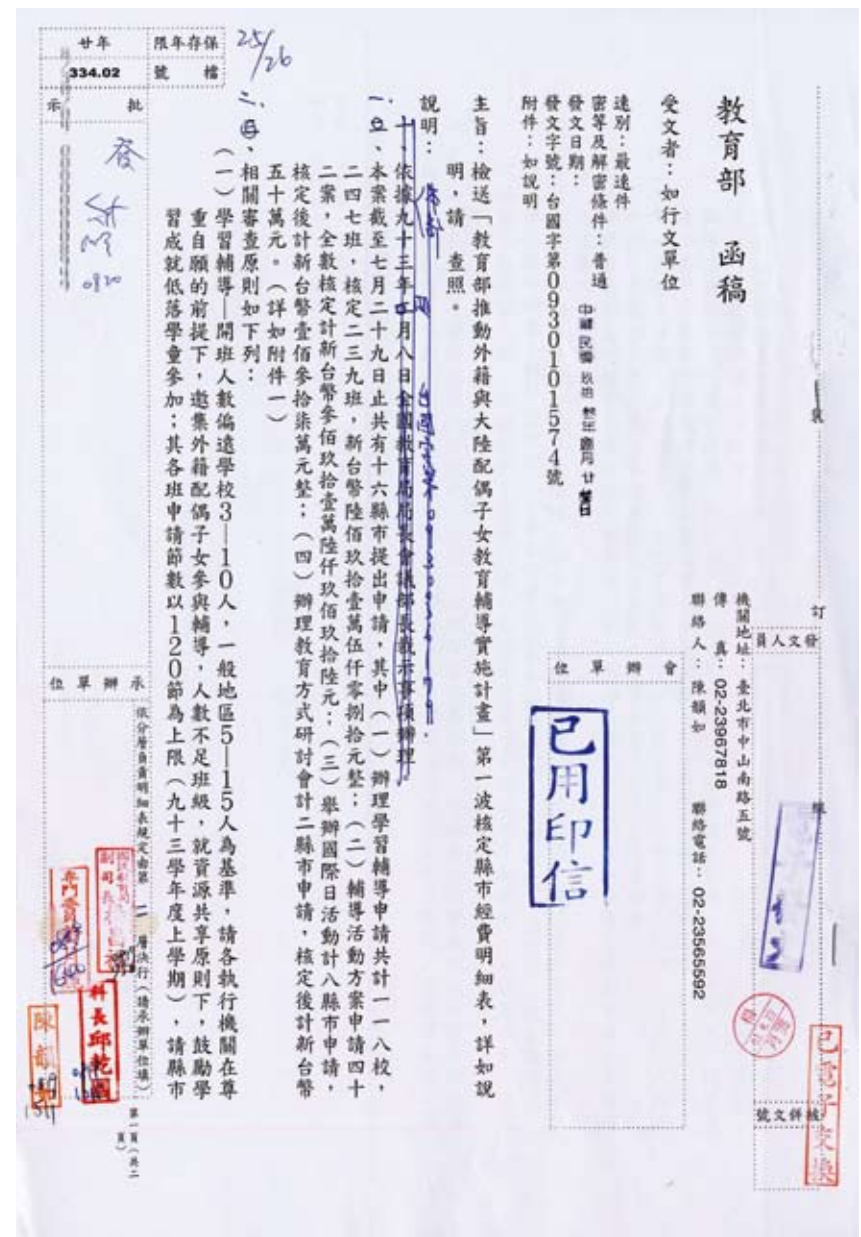 教育部　函稿
機關地址：臺北市中山南路五號
傳　真：02-23967818
聯絡人：陳韻如　聯絡電話：02-23565592
受文者：如行文單位
速別：最速件
密等及解密條件：普通
發文日期：
發文字號：台國字第0930101574號
附件：如說明
主旨：檢送「教育部推動外籍與大陸配偶子女教育輔導實施計畫」第一波核定縣市經費明細表，詳如說
明，請　查照。
說明：
一、依據九十三年四月八日全國教育局局長會議部長教示事項辦理
一、本案截至七月二十九日止共有十六縣市提出申請，其中（一）辦理學習輔導申請共計一一八校，
二四七班，核定二三九班，新台幣陸佰玖拾壹萬伍仟零捌拾元整；（二）輔導活動方案申請四十
二案，全數核定計新台幣參佰玖拾壹萬陸仟玖佰玖拾陸元；（三）舉辦國際日活動計八縣市申請，
核定後計新台幣壹佰參拾柒萬元整；（四）辦理教育方式研討會計二縣市申請，核定後計新台幣
五十萬元。（詳如附件一）
二、相關審查原則如下列：
（一）學習輔導—開班人數偏遠學校3—10人，一般地區5—15人為基準，請各執行機關在尊
重自願的前提下，邀集外籍配偶子女參與輔導，人數不足班級，就資源共享原則下，鼓勵學
習成就低落學童參加；其各班申請節數以120節為上限（九十三學年度上學期），請縣市
保存年限
廿年
檔號
334.02
25/26
批示
發
0920
會辦單位
已用印信
發文人員
訂
已電子交換
承辦單位
依分層負責明細表規定由第二層決行（請承辦單位填）
專門委員
科長邱乾國
陳韻
第一頁（共二頁）